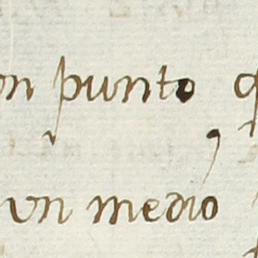 on punto q
vn medio